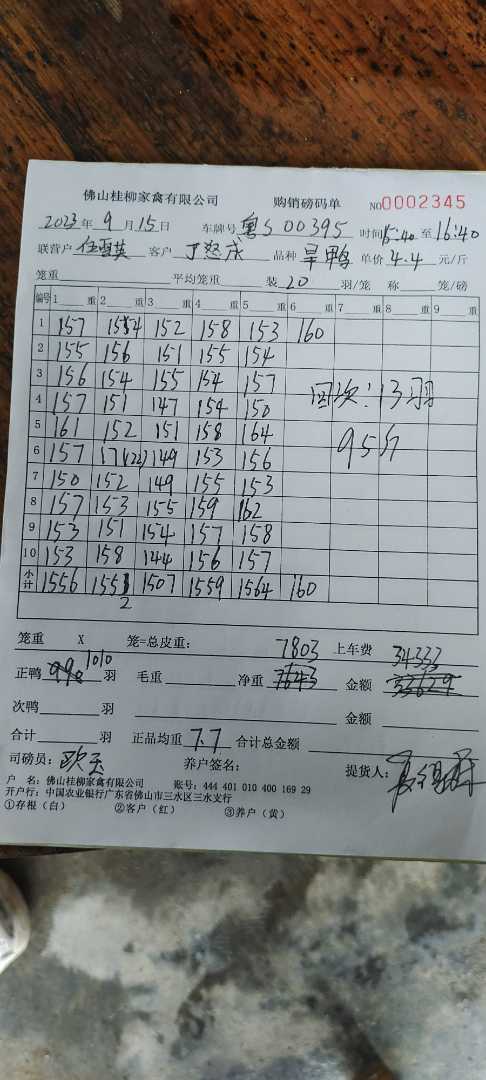 佛山桂柳家禽有限公司 购销磅码单 NO0002345
2023年9月15日 车牌号粤S00395 时间15:40至16:40
联营户任雪英 客户 品种旱鸭 单价4.4元/斤
笼重 平均笼重 装20羽/笼 称 笼/磅
编号 1 重 2 重 3 重 4 重 5 重 6 重 7 重 8 重 9 重
1 157 154 152 158 153 160
2 155 156 151 155 154
3 156 154 155 154 157 回次:13羽
4 157 151 147 154 150
5 161 152 151 158 164 95斤
6 157 171(22) 149 153 156
7 150 152 149 155 153
8 157 153 155 159 162
9 153 151 154 157 158
10 153 158 144 156 157
小计 1556 1552 1507 1559 1564 160
笼重 X 笼=总皮重: 7803 上车费 34333
正鸭 990 1010 羽 毛重 净重 7643 金额 33629
次鸭 羽 金额
合计 羽 正品均重 7.7 合计总金额
司磅员: 养户签名: 提货人:
户 名:佛山桂柳家禽有限公司 账号:444 401 010 400 169 29
开户行:中国农业银行广东省佛山市三水区三水支行
①存根(白) ②客户(红) ③养户(黄)